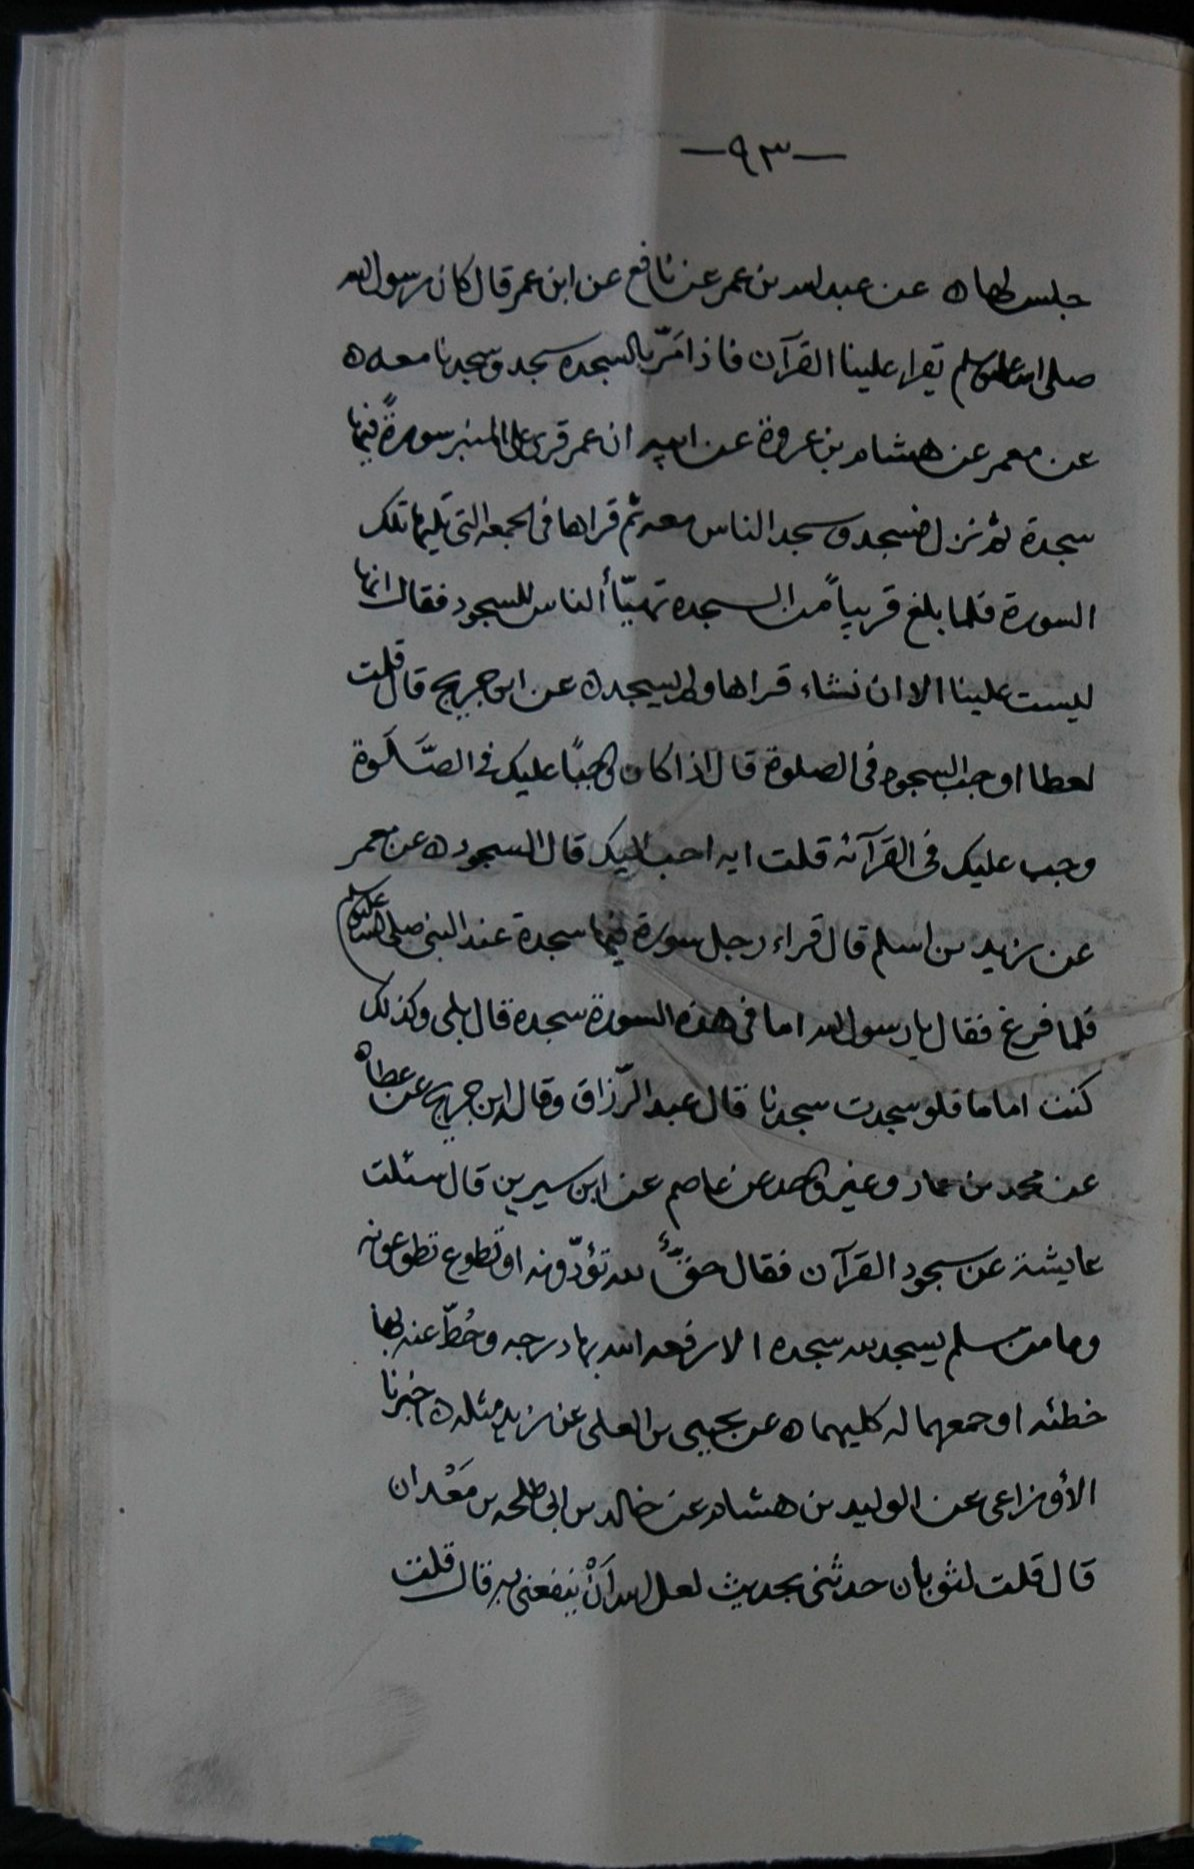 —٩٣—
جلس لها ه عن عبدالله بن عمر عن نافع عن ابن عمر قال كان رسول الله
صلى الله عليه وسلم يقراء علينا القرآن فاذا مَرّ بالسجدة سجد وسجدنا معه ه
عن معمر عن هشام بن عروة عن ابيه ان عمر قرئ على المنبر سورةً فيها
سجدة ثم نزل فسجد وسجد الناس معه ثم قراها فى الجمعه التى تليها تلك
السورة فلما بلغ قريباً من السجده تهيّأ الناس للسجود فقال انها
ليست علينا الا ان نشاء قراها ولم يسجد ه عن ابن جريج قال قلت
لعطا اوجب السجود فى الصلوة قال اذا كان واجبًا عليك فى الصَّلَوة
وجب عليك فى القرآنه قلت ايه احب اليك قال السجود ه عن معمر
عن زيد بن اسلم قال قراء رجل سورة فيها سجدة عند النبى صلى الله عليه وسلم
فلما فرغ فقال يا رسول الله اما فى هذه السورة سجدة قال بلى وكذلك
كنت اماما فلو سجدت سجدنا قال عبد الرّزاق وقاله ابن جريج عن عطا ه
عن محمد بن عمار وغير واحد عن عاصم عن ابن سيرين قال سئلت
عايشة عن سجود القرآن فقال حقٌّ لله تؤدّونه او تطوع تطوعونه
وما من مسلم يسجد لله سجده الا رفعه الله بها درجه وحُطّ عنه بها
خطئه او جمعهما له كليهما ه عن يحيى بن العلى عن زيد مثله ه اخبرنا
الأوزاعى عن الوليد بن هشام عن خالد بن ابى طلحه بن مَعْدان
قال قلت لثوبان حدثنى بحديث لعل الله اَنْ ينفعنى به قال قلت